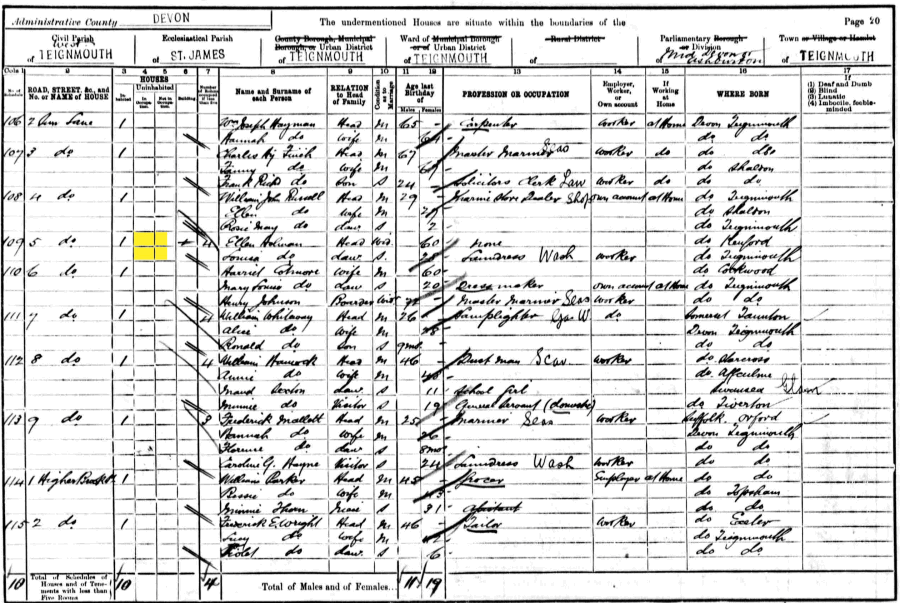 Administrative County DEVON The undermentioned Houses are situate within the boundaries of the Page 20
Civil Parish Ecclesiastical Parish County Borough, Municipal Borough, or Urban District Ward of Municipal Borough or of Urban District Rural District Parliamentary Borough or Division Town or Village or Hamlet
West of TEIGNMOUTH of ST. JAMES of TEIGNMOUTH of TEIGNMOUTH of of Mid Devon or Ashburton of TEIGNMOUTH
Cols 1 2 3 4 5 6 7 8 9 10 11 12 13 14 15 16 17
No. of Schedule ROAD, STREET, &c., and No. or NAME of HOUSE HOUSES Inhabited Uninhabited In Occupation Not in Occupation Building Name and Surname of each Person RELATION to Head of Family Condition as to Marriage Age last Birthday of Males Females PROFESSION OR OCCUPATION Employer, Worker, or Own account If Working at Home WHERE BORN If (1) Deaf and Dumb (2) Blind (3) Lunatic (4) Imbecile, feeble-minded
106 2 Lane 1 Wm Joseph Hayman Head M 65 Carpenter Worker at Home Devon Teignmouth
Hannah do Wife M do do
107 3 do 1 Charles Hy Finch Head M 67 Master Mariner Seas Worker do do do
Fanny do Wife M do Shaldon
Frank Rich do Son S 24 Solicitors Clerk Law Worker do do do
108 4 do 1 William John Russell Head M 29 Marine Store Dealer Shop own account at Home do Teignmouth
Ellen do Wife M do Shaldon
Rosie May do daur S 2 do Teignmouth
109 5 do 1 4 Ellen Holman Head Wid 60 none do Kenford
Louisa do daur S 28 Laundress Wash Worker do Teignmouth
110 6 do 1 Harriet Wife M 60 do Cockwood
Mary Louisa do daur S 20 Dress maker own account at Home do Teignmouth
Henry Johnson Boarder Master Mariner Seas Worker do do
111 7 do 1 4 William Whiteway Head M 26 Lamplighter Gas W. do Somerset Taunton
Alice do Wife M 28 Devon Teignmouth
Ronald do Son S 9 mos do do
112 8 do 1 4 William Hancock Head M 46 Dust man Scav Worker do Starcross
Annie do Wife M do
Maud Sexton daur S 11 School Girl Swansea Glam
Minnie do Visitor S 19 General Servant (domestic) do Tiverton
113 9 do 1 3 Frederick Mallett Head M 25 Mariner Seas Worker Suffolk Orford
Hannah do Wife M 26 Devon Teignmouth
Florence do daur S 8 mos do do
Caroline G. Hayne Visitor S 24 Laundress Wash Worker do do
114 1 Higher Brook 1 William Parker Head M 45 Grocer Employer at Home do do
Bessie do Wife M 43 do Topsham
Minnie Thorn Niece S 31 Assistant do do
115 2 do 1 Frederick E. Wright Head M 46 Tailor Worker do Exeter
Lucy do Wife M do Teignmouth
Violet do daur S 6 do do
10 Total of Schedules of Houses and of Tenements with less than Five Rooms 10 4 Total of Males and of Females... 11 19